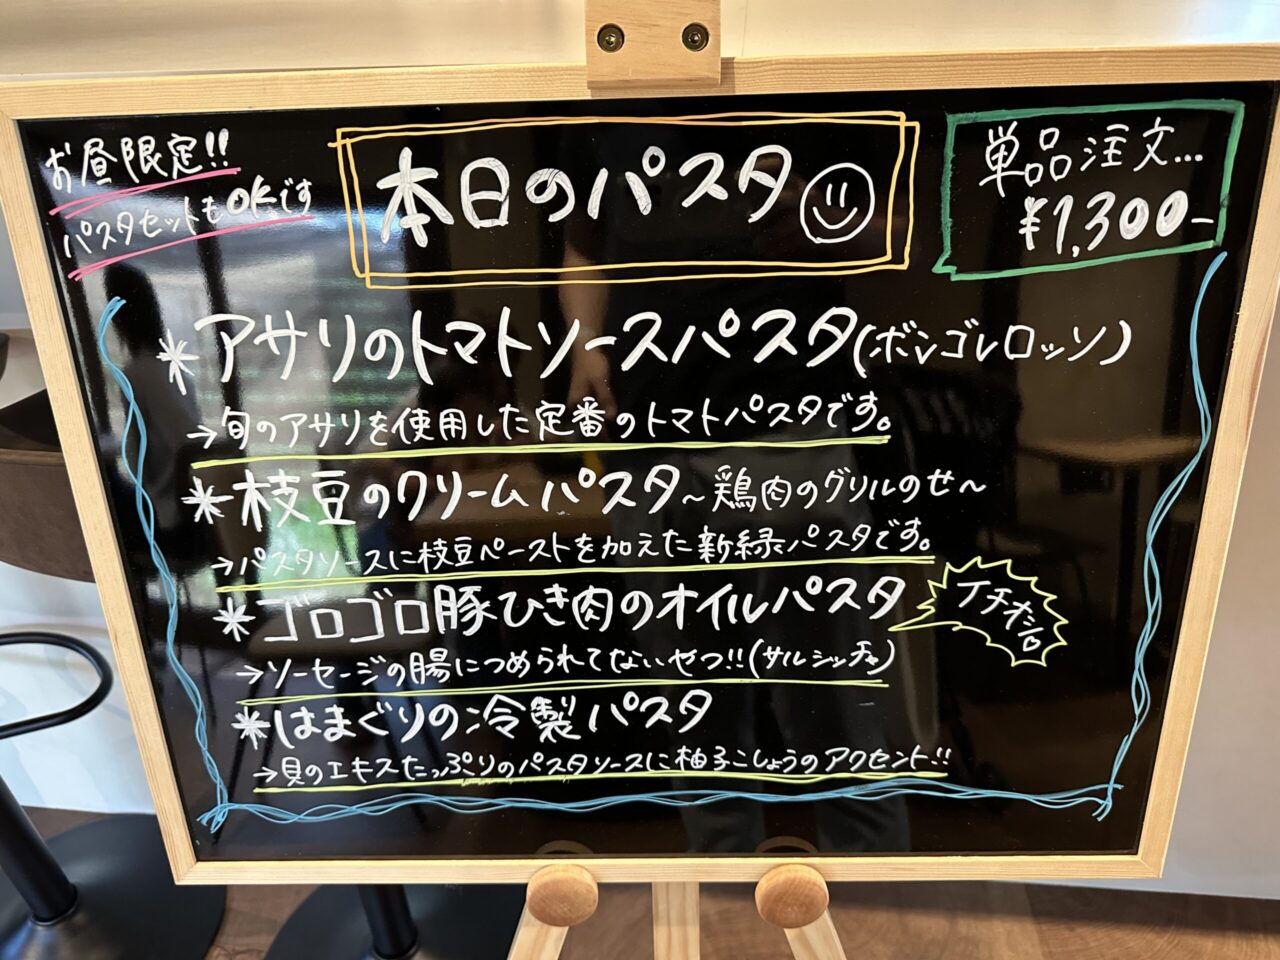 お昼限定!!
パスタセットもOKです
本日のパスタ
単品注文...
¥1,300-
*アサリのトマトソースパスタ(ボンゴレロッソ)
→旬のアサリを使用した定番のトマトパスタです。
*枝豆のクリームパスタ~鶏肉のグリルのせ~
→パスタソースに枝豆ペーストを加えた新緑パスタです。
*ゴロゴロ豚ひき肉のオイルパスタ
イチオシ
→ソーセージの腸につめられてないやつ!!(サルシッチャ)
*はまぐりの冷製パスタ
→貝のエキスたっぷりのパスタソースに柚子こしょうのアクセント!!